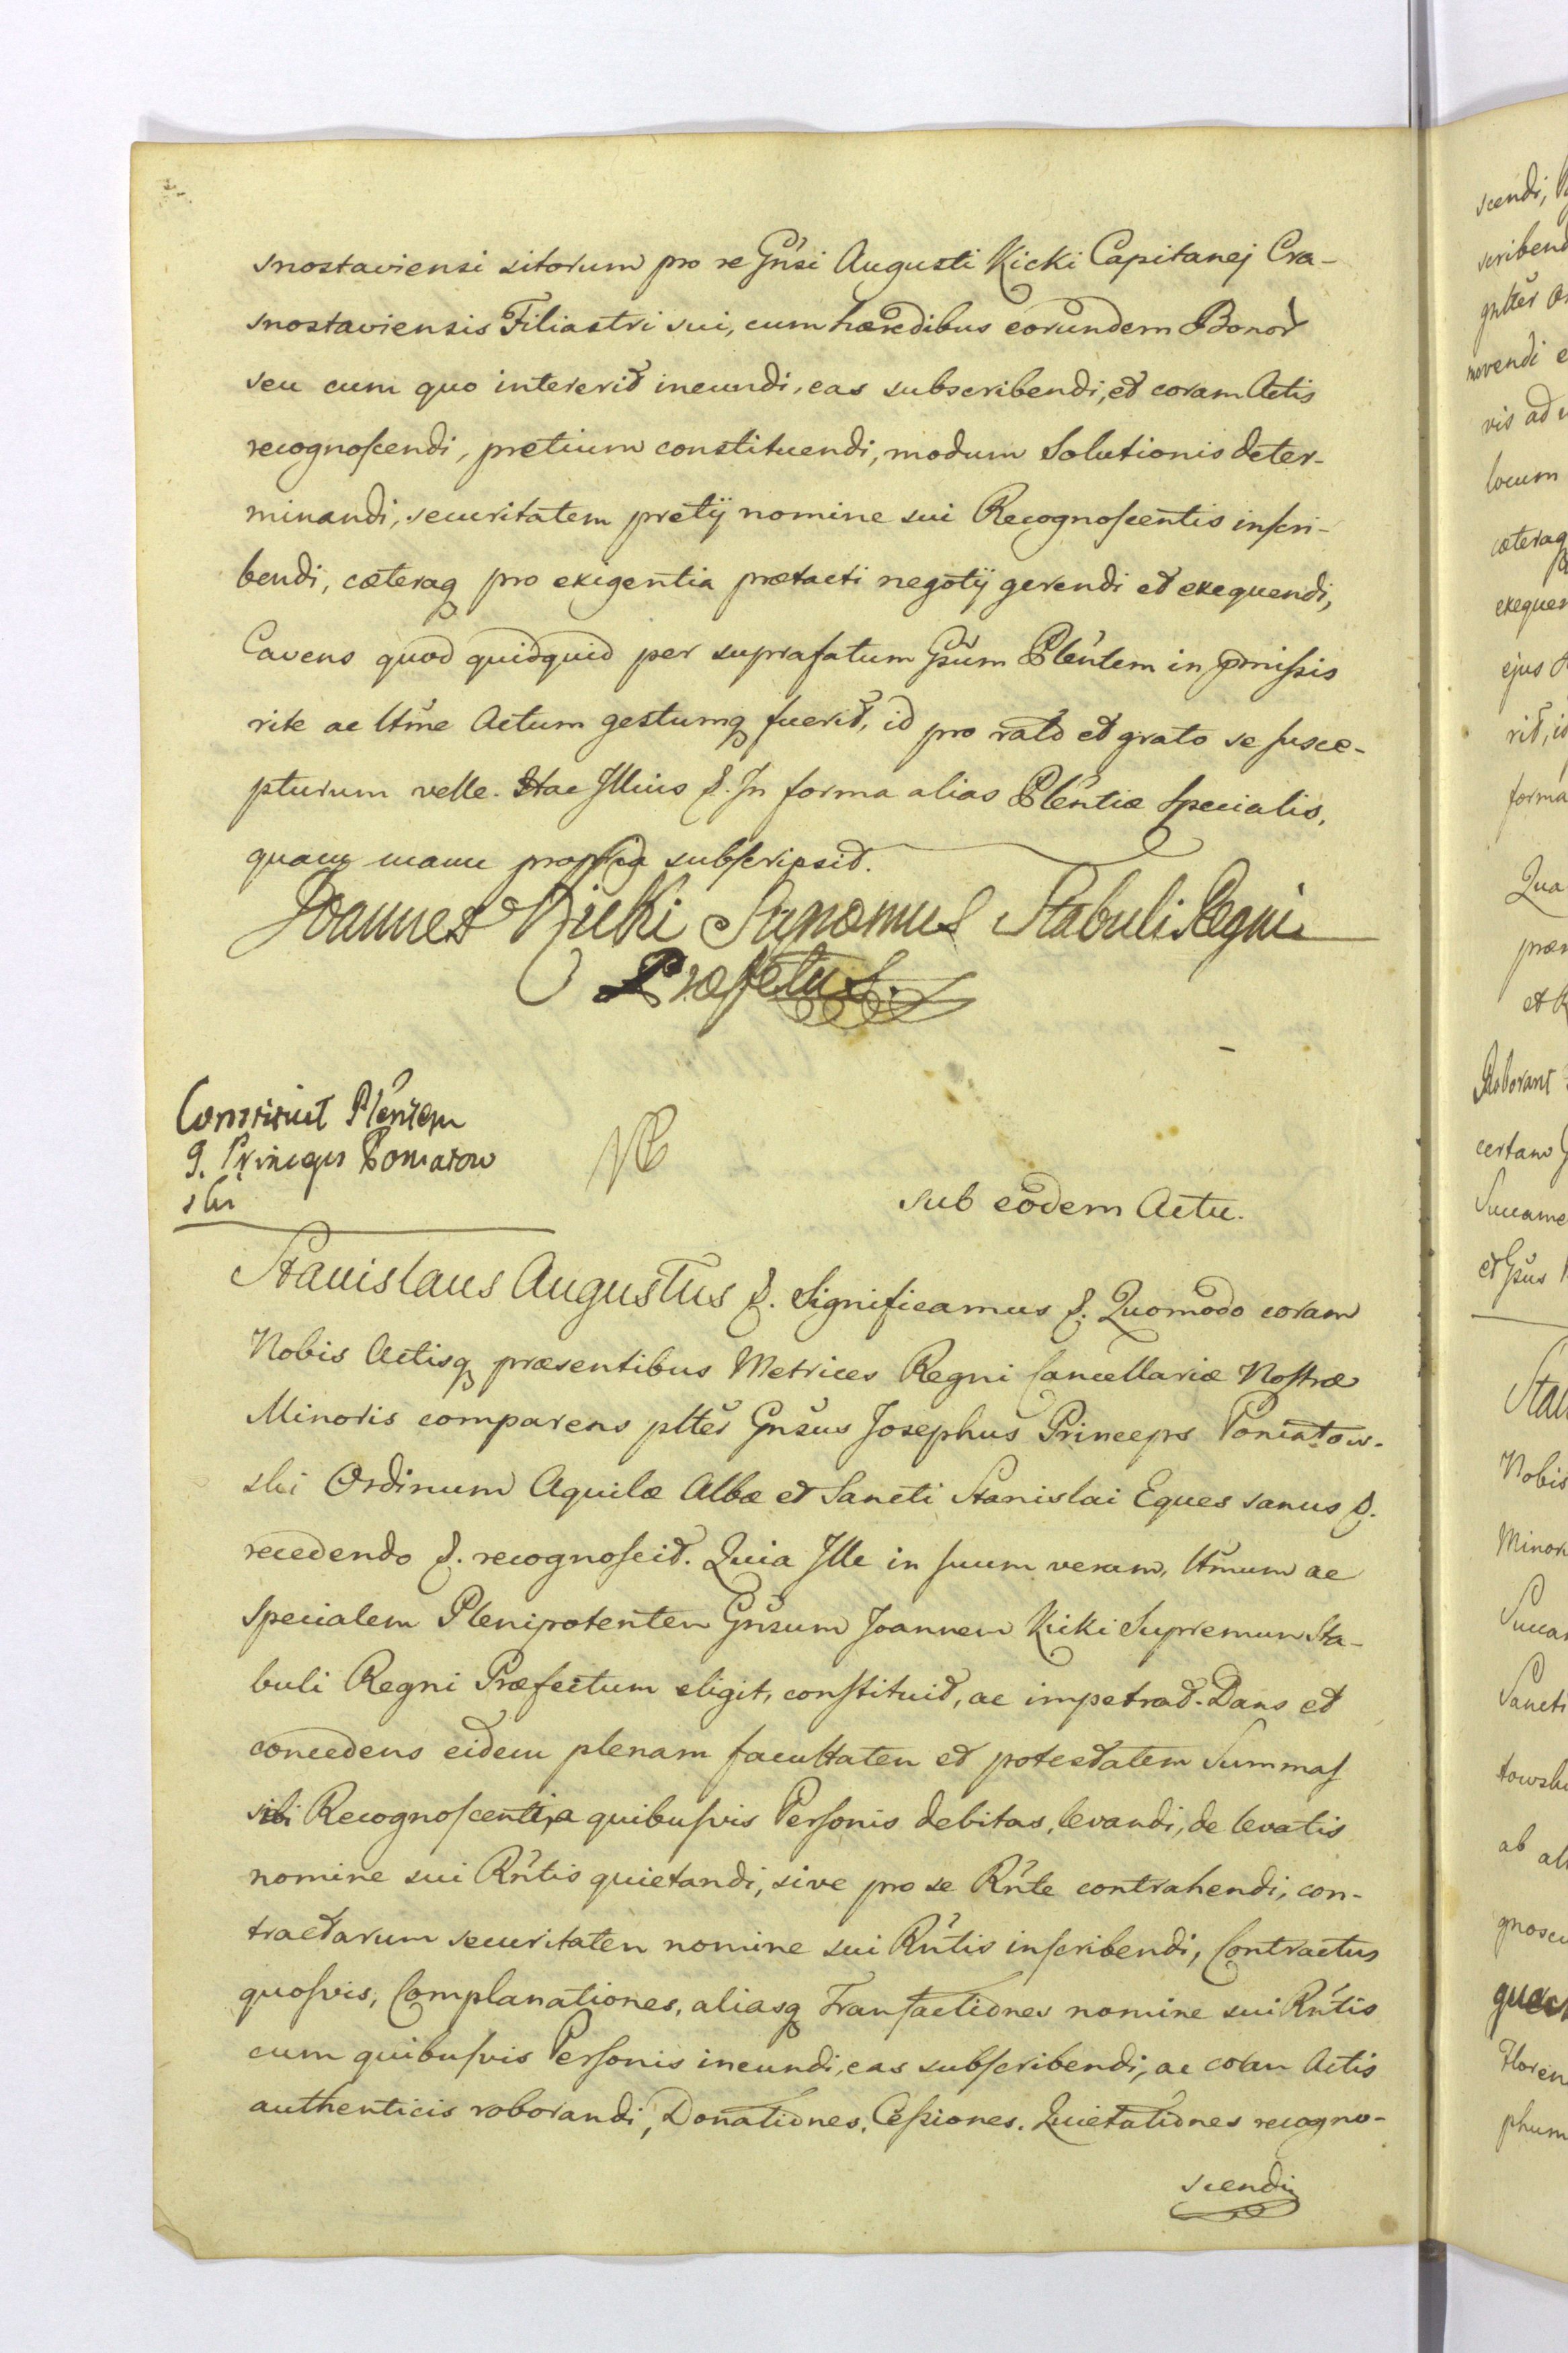 snostaviensi sitorum pro re Gnsi Augusti Kicki Capitanej Cra-
snostaviensis Filiastri sui, cum hæredibus eorundem Bonor
seu cum quo intererit ineundi, eas subscribendi, et coram Actis
recognoscendi, pretium constituendi, modum Solutionis deter-
minandi, securitatem pretij nomine sui Recognoscentis inscri-
bendi, cæteraq pro exigentia prætacti negotij gerendi et exequendi,
Cavens quod quidquid per suprafatum Gsum Plentem in pmissis
rite ac ltme Actum gestumq fuerit, id pro rato et grato se susce-
pturum velle. Hac Illius &. In forma alias Plentiæ Specialis,
quam manu propria subscripsit.
Joannes Kicki Supremus Stabuli Regni
Præfectus.
Constituit Plentem
G. Princeps Poniatow
ski
sub eodem Actu.
Stanislaus Augustus &. Significamus &. Quomodo coram
Nobis Actisq præsentibus Metrices Regni Cancellariæ Nostræ
Minoris comparens plter Gnsus Josephus Princeps Poniatow-
ski Ordinum Aquilæ Albæ et Sancti Stanislai Eques sanus &.
recedendo &. recognoscit. Quia Ille in suum verum, ltmum ac
Specialem Plenipotentem Gnsum Joannem Kicki Supremum Sta-
buli Regni Præfectum eligit, constituit, ac impetrat. Dans et
concedens eidem plenam facultatem et potestatem Summas
sibi Recognoscenti a quibusvis Personis debitas, levandi, de levatis
nomine sui Rntis quietandi, sive pro se Rnte contrahendi, con-
tractarum securitatem nomine sui Rntis inscribendi, Contractus
quosvis, Complanationes, aliasq Transactiones nomine sui Rntis
cum quibusvis Personis ineundi, eas subscribendi, ac coram Actis
authenticis roborandi, Donationes, Cessiones, Quietationes recogno-
scendi